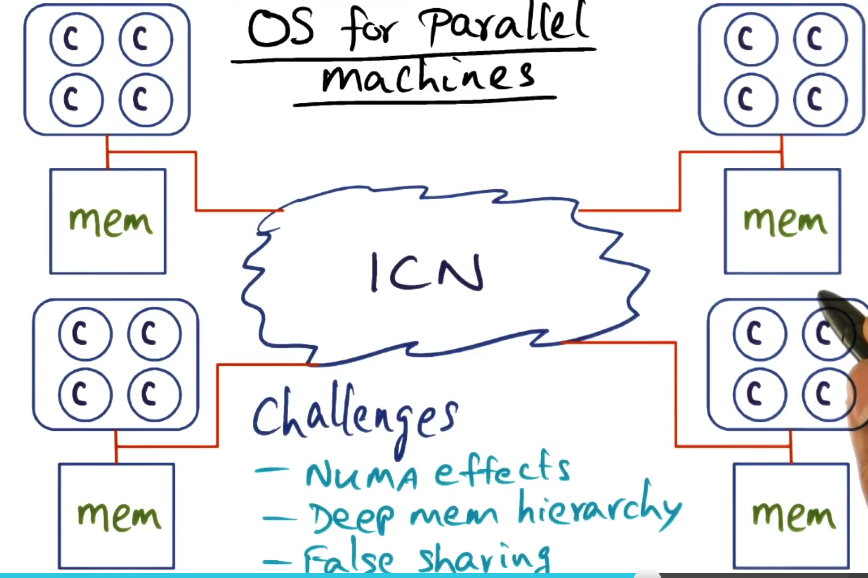 OS for parallel
machines
C C
C C
mem
C C
C C
mem
ICN
C C
C C
mem
C C
C C
mem
Challenges
- NUMA effects
- Deep mem hierarchy
- False sharing